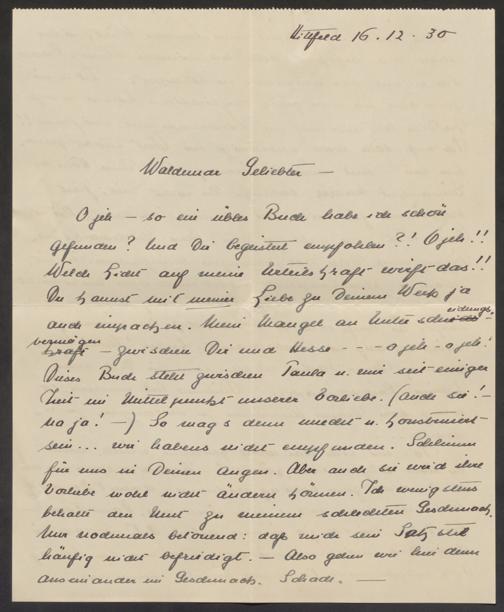 Hittfeld 16.12.30
Waldemar Geliebter —
O jeh — so ein übles Buch habe ich schön
gefunden? Und Dir begeistert empfohlen?! O jeh!!
Welch Licht auf meine Urteilskraft wirft das!!
Du kannst mit meiner Liebe zu Deinem Werk ja
auch einpacken. Mein Mangel an Unterscheidungs-
vermögen — zwischen Dir und Hesse - - - o jeh - o jeh!
Dieses Buch steht zwischen Paula u. mir seit einiger
Zeit im Mittelpunkt unserer Vorliebe. (auch sie! -
na ja! -) So mag's denn unecht u. konstruiert
sein... wir habens nicht empfunden. Schlimm
für uns in Deinen Augen. Aber auch sie wird ihre
Vorliebe wohl nicht ändern können. Ich wenigstens
behalte den Mut zu meinem schlechten Geschmack.
Nur nochmals betonend: daß mich sein Satzstil
häufig nicht befriedigt. — Also gehen wir hier denn
auseinander im Geschmack. Schade. —